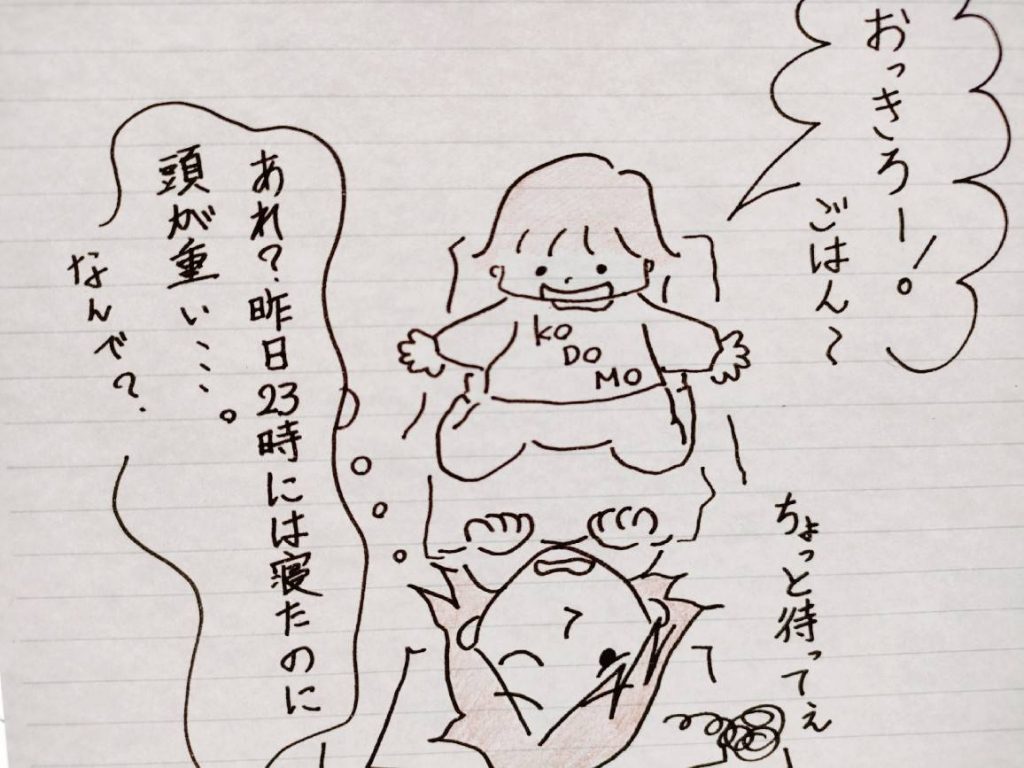 おっきろー！。
ごはん〜
KO
DO
MO
ちょっと待ってぇ
あれ？昨日23時には寝たのに
頭が重い…。
なんで？